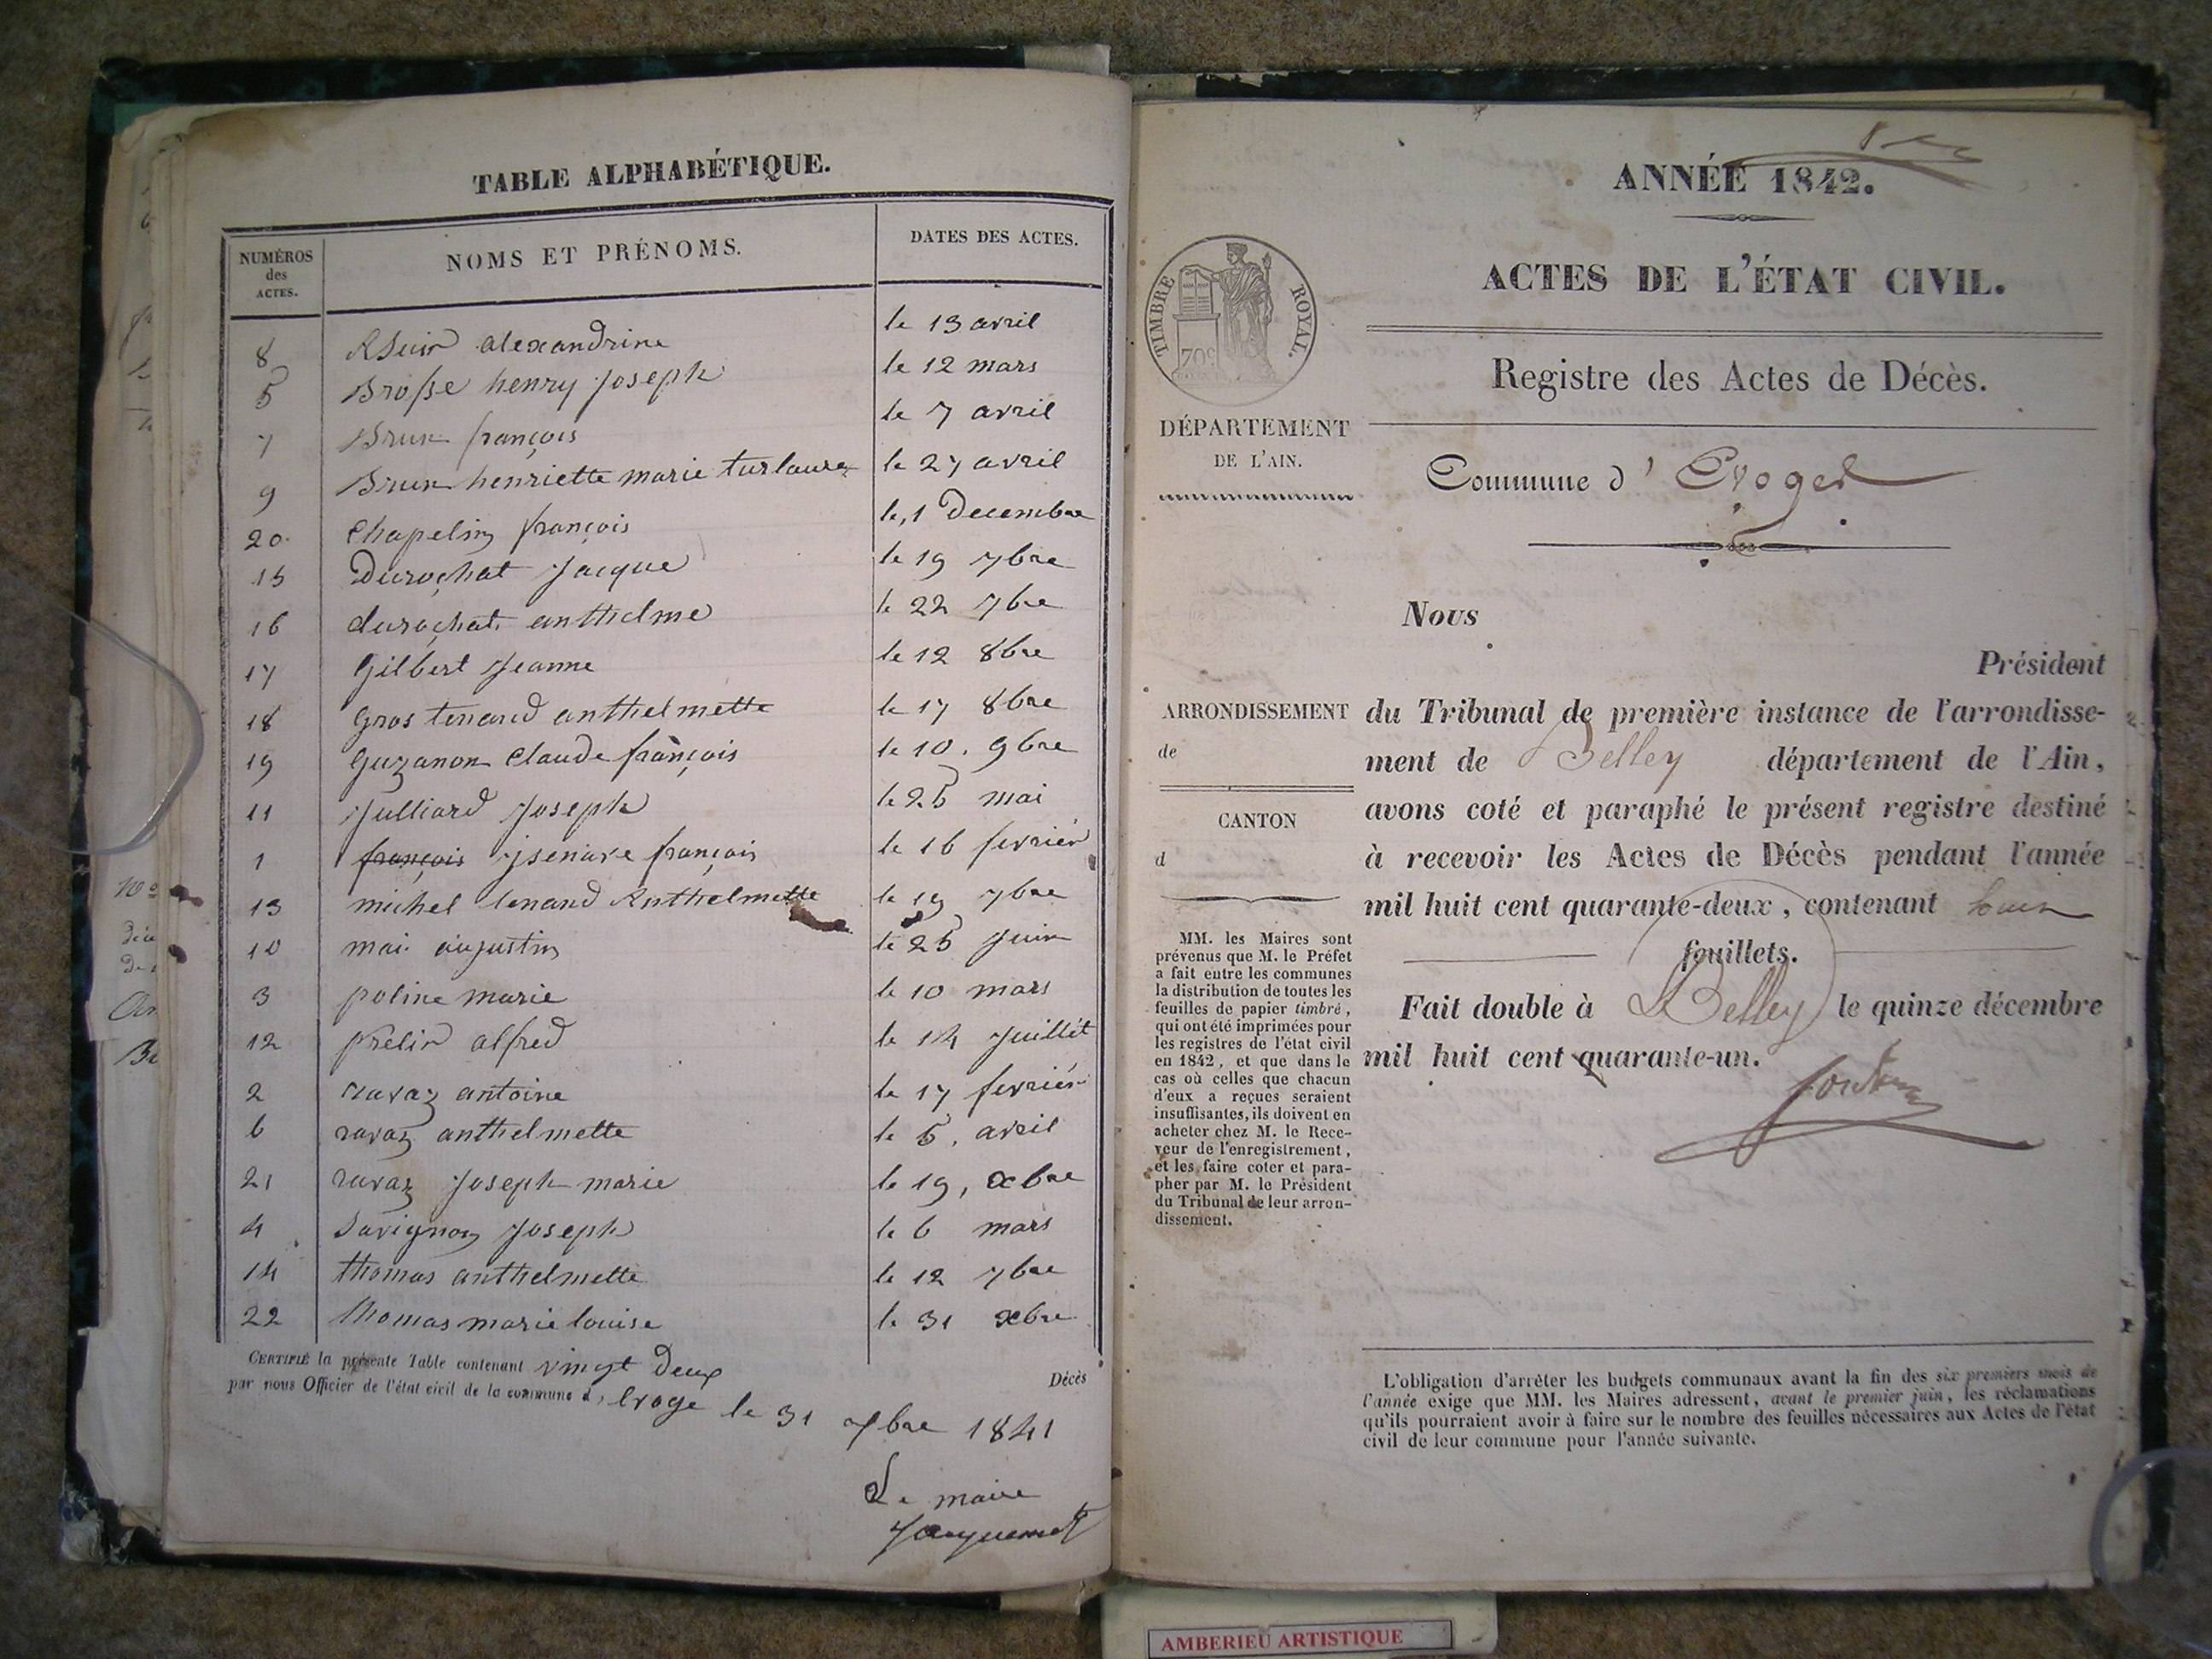 TABLE ALPHABÉTIQUE.
NUMÉROS des ACTES. NOMS ET PRÉNOMS. DATES DES ACTES.
8 alexandrine le 13 avril
5 Broße henry Joseph le 12 mars
7 Brun françois le 7 avril
9 Brun henriette marie le 27 avril
20 Chapelin françois le, 1 Decembre
15 Durochat Jacque le 19 7bre
16 durochat anthelme le 22 7bre
17 Gilbert Jeanne le 12 8bre
18 Gros tenand anthelmette le 17 8bre
19 Guzanon Claude françois le 10. 9bre
11 Julliard Joseph le 25 mai
1 françois françois le 16 fevrier
13 michel tenand Anthelmette le 19 7bre
10 mai augustin le 25 Juin
3 poline marie le 10 mars
12 prelin alfred le 14 Juillet
2 ravaz antoine le 17 fevrier
6 ravaz anthelmette le 5, avril
21 ravaz Joseph marie le 19, xbre
4 Savignon Joseph le 6 mars
14 thomas anthelmette le 12 7bre
22 thomas marie louise le 31 xbre
CERTIFIÉ la présente Table contenant vingt Deux Décès
par nous Officier de l'état civil de la commune d, Evoge le 31 xbre 1841
Le maire
Jacquemet
ANNÉE 1842.
ACTES DE L'ÉTAT CIVIL.
TIMBRE ROYAL.
70c
Registre des Actes de Décès.
DÉPARTEMENT
DE L'AIN.
Commune d' Evoges
Nous
Président
ARRONDISSEMENT
de
du Tribunal de première instance de l'arrondisse-
ment de Belley département de l'Ain,
avons coté et paraphé le présent registre destiné
CANTON
d
à recevoir les Actes de Décès pendant l'année
mil huit cent quarante-deux, contenant
fouillets.
Fait double à Belley le quinze décembre
mil huit cent quarante-un.
MM. les Maires sont
prévenus que M. le Préfet
a fait entre les communes
la distribution de toutes les
feuilles de papier timbré,
qui ont été imprimées pour
les registres de l'état civil
en 1842, et que dans le
cas où celles que chacun
d'eux a reçues seraient
insuffisantes, ils doivent en
acheter chez M. le Rece-
veur de l'enregistrement,
et les faire coter et para-
pher par M. le Président
du Tribunal de leur arron-
dissement.
L'obligation d'arrêter les budgets communaux avant la fin des six premiers mois de
l'année exige que MM. les Maires adressent, avant le premier juin, les réclamations
qu'ils pourraient avoir à faire sur le nombre des feuilles nécessaires aux Actes de l'état
civil de leur commune pour l'année suivante.
AMBERIEU ARTISTIQUE